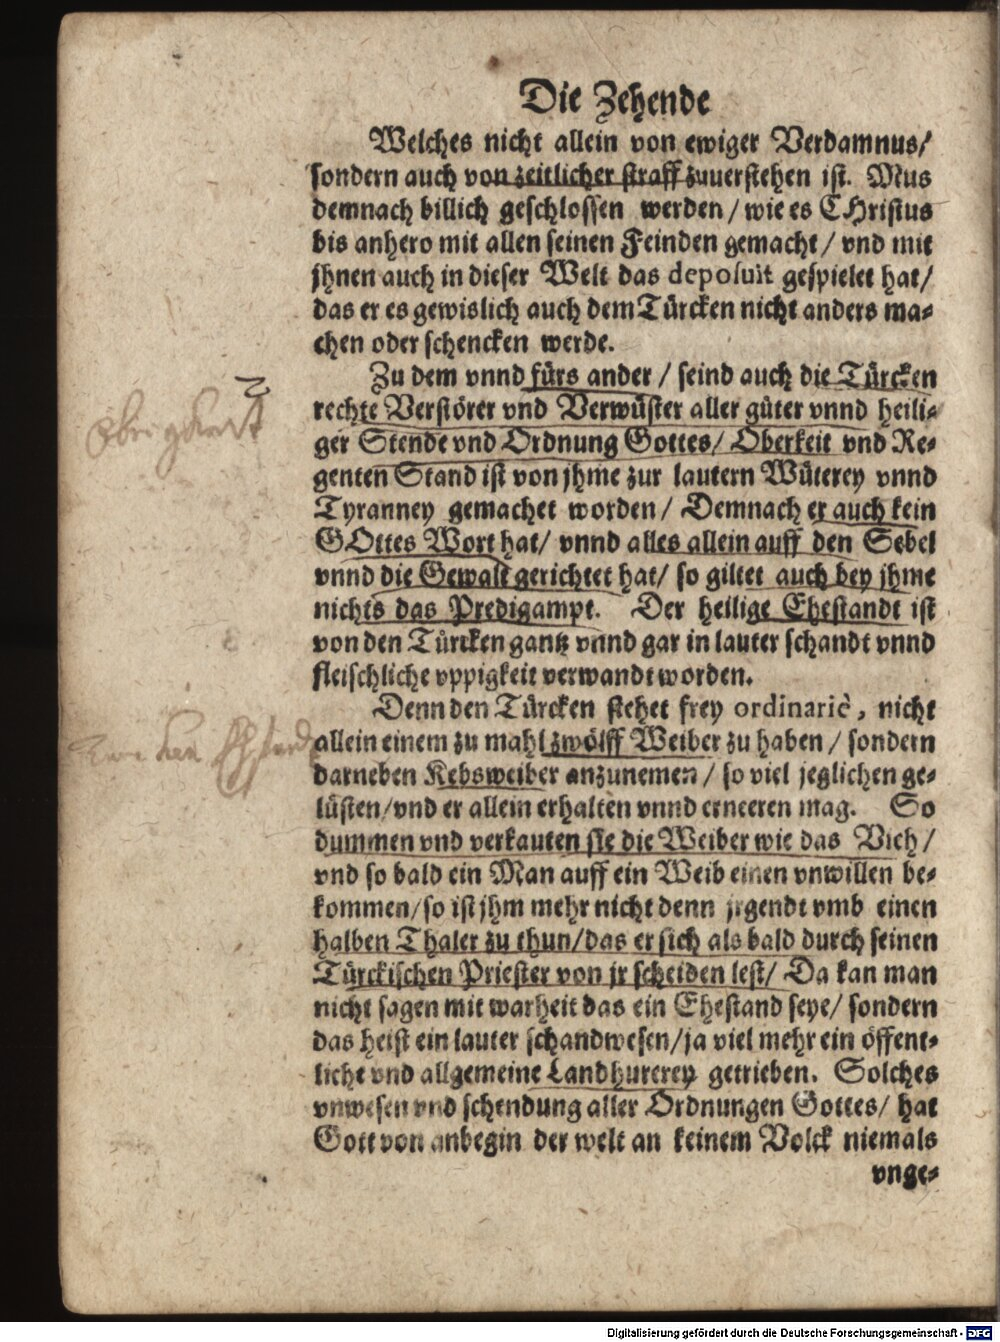 Die Zehende
Welches nicht allein von ewiger Verdamnus/
sondern auch von zeitlicher straff zuuerstehen ist. Mus
demnach billich geschlossen werden / wie es CHristus
bis anhero mit allen seinen Feinden gemacht / vnd mit
jhnen auch in dieser Welt das deposuit gespielet hat/
das er es gewislich auch dem Türcken nicht anders ma-
chen oder schencken werde.
Zu dem vnnd fürs ander / seind auch die Türcken
rechte Verstörer vnd Verwüster aller güter vnnd heili-
ger Stende vnd Ordnung Gottes/ Oberkeit vnd Re-
genten Stand ist von jhme zur lautern Wüterey vnnd
Tyranney gemachet worden/ Demnach er auch kein
GOttes Wort hat/ vnnd alles allein auff den Sebel
vnnd die Gewalt gerichtet hat/ so giltet auch bey jhme
nichts das Predigampt. Der heilige Ehestandt ist
von den Türcken gantz vnnd gar in lauter schandt vnnd
fleischliche vppigkeit verwandt worden.
Denn den Türcken stehet frey ordinariè, nicht
allein einem zu mahl zwölff Weiber zu haben / sondern
darneben Kebsweiber anzunemen / so viel jeglichen ge-
lüsten/vnd er allein erhalten vnnd erneeren mag. So
dummen vnd verkauten sie die Weiber wie das Vich/
vnd so bald ein Man auff ein Weib einen vnwillen be-
kommen/so ist jhm mehr nicht denn jrgendt vmb einen
halben Thaler zu thun/das er sich als bald durch seinen
Türckischen Priester von jr scheiden lest/ Da kan man
nicht sagen mit warheit das ein Ehestand seye/ sondern
das heist ein lauter schandwesen/ja viel mehr ein öffent-
liche vnd allgemeine Landhurerey getrieben. Solches
vnwesen vnd schendung aller Ordnungen Gottes/ hat
Gott von anbegin der welt an keinem Volck niemals
vnge-
Digitalisierung gefördert durch die Deutsche Forschungsgemeinschaft - DFG